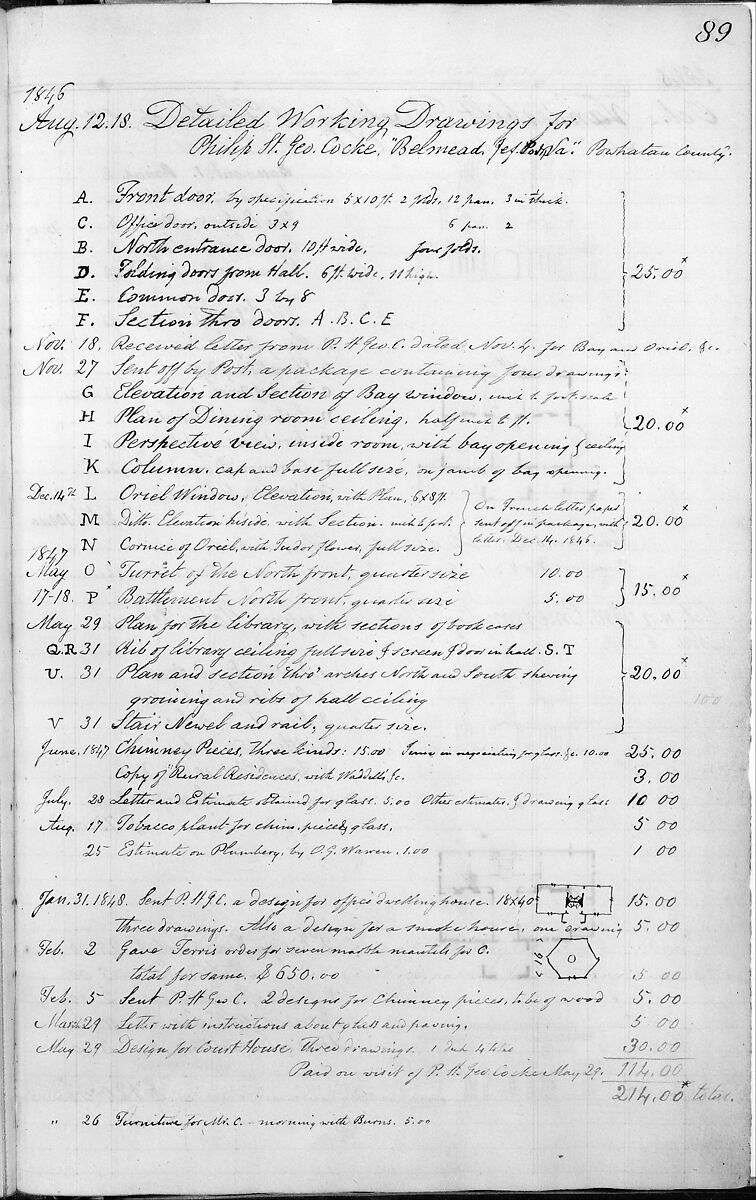 89
1846
Aug. 12.18. Detailed Working Drawings for
Philip St. Geo. Cocke, "Belmead, Va". Powhatan County.
A. Front door. by specification 5 x 10 ft. 2 folds. 12 pan. 3 in thick.
C. Office door, outside 3 x 9 6 pan. 2
B. North entrance door. 10 ft wide, four folds. 25.00*
D. Folding doors from Hall. 6 ft wide, 11 high.
E. Common door. 3 by 8
F. Section thro doors. A. B. C. E
Nov. 18. Received letter from P. St Geo. C. dated Nov. 4. for Bay and Oriel, &c.
Nov. 27 Sent off by Post, a package containing four drawings:
G Elevation and Section of Bay window, inch to foot scale
H Plan of Dining room ceiling, half inch to ft. 20.00*
I Perspective view, inside room, with bay opening & ceiling
K Column, cap and base full size, on jamb of bay opening.
Dec. 14th L Oriel Window, Elevation, with Plan, 6 x 8 ft. On French letter paper
M Ditto. Elevation inside, with Section. inch to foot. sent off in package, with 20.00*
N Cornice of Oriel, with Tudor flower, full size. letter. Dec. 14. 1846.
1847
May O Turret of the North front, quarter size 10.00
17-18. P* Battlement North front, quarter size 5.00 15.00*
May 29 Plan for the library, with sections of bookcases
Q.R. 31 Rib of library ceiling full size & screen & door in hall. S. T
U. 31 Plan and section thro' arches North and South shewing 20.00*
groining and ribs of hall ceiling
V 31 Stair Newel and rail, quarter size.
June. 1847 Chimney Pieces, three kinds: 15.00 Time in negociating for glass, &c. 10.00 25.00
Copy of "Rural Residences, with Waddell &c. 3.00
July. 28 Letter and Estimate obtained for glass. 5.00 Other estimates, & drawing glass 10 00
Aug. 17 Tobacco plant for chim. pieces & glass. 5 00
25 Estimate on Plumbery, by O. G. Warren. 1.00 1 00
Jan. 31. 1848. Sent P. St G. C. a design for office dwelling house. 18 x 40 15.00
three drawings. Also a design for a smoke house, one drawing 5.00
Feb. 2 Gave Ferris order for seven marble mantels for C. < 16 >
total for same. $650.00 5 00
Feb. 5 Sent P. St Geo C. 2 designs for Chimney pieces, to be of wood 5.00
March 29 Letter with instructions about glass and paving. 5 00
May 29 Design for Court House, three drawings. 30.00
Paid on visit of P. St. Geo Cocke May 29. 114.00
214.00* total.
" 26 Furniture for Mr. C. - morning with Burns. 5.00